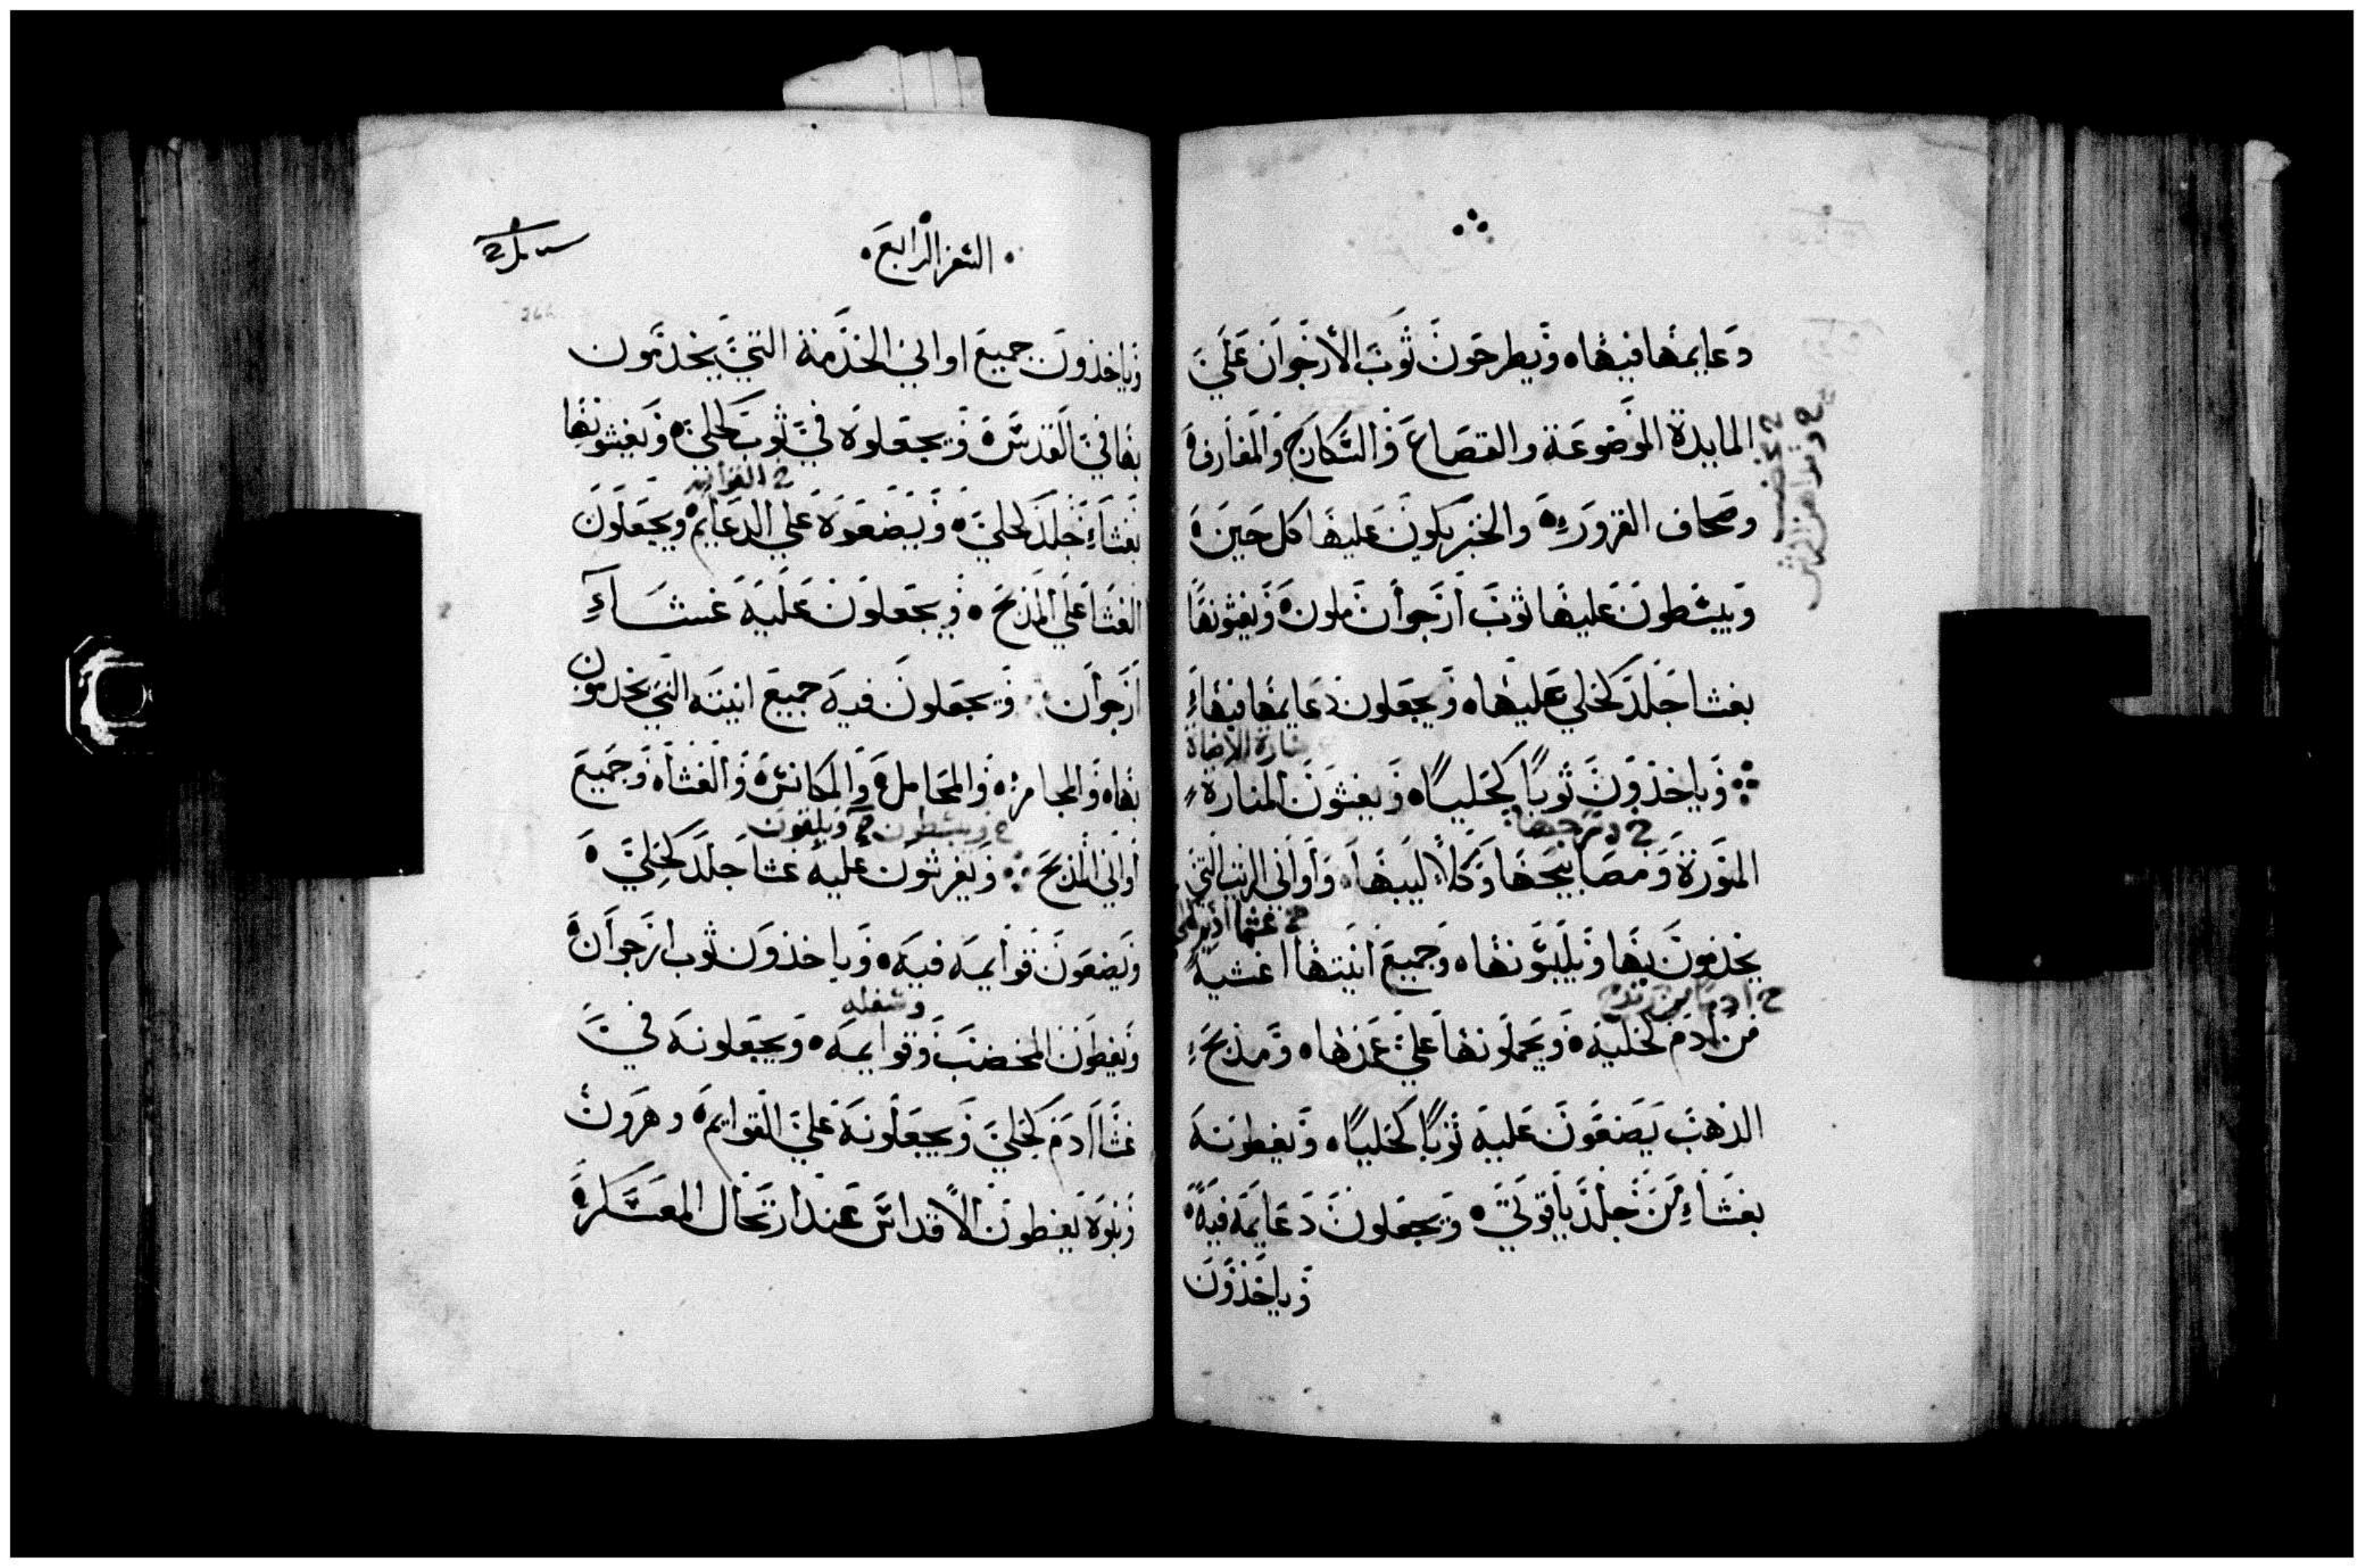 دعايمها فيها ويطرحون ثوب الأرجوان علي
المايدة الموضوعة والقصاع والسكارج والمغارف
وصحاف القرور والخبز يكون عليها كل حين
ويبسطون عليها ثوب ارجوان ملون ويغشونها
بغشا جلد كحلي عليها ويجعلون دعايمها فيها
منارة الاضاة
وياخذون ثوبا كحليا ويغشون المنارة
المنورة ومصابيحها وكلاليبها واواني الزيت التي
يخدمون بها ويلبسونها وجميع انيتها اغشية
من ادم كحلية ويحملونها علي عمدها ومذبح
الذهب يضعون عليه ثوبا كحليا ويغطونه
بغشاء من جلد ياقوتي ويجعلون دعايمه فيه
وياخذون
السفر الرابع
وياخذون جميع اواني الخدمة التي يخدمون
بها في القدس ويجعلوه في ثوب كحلي ويغشونها
بغشاء جلد كحلي ويضعوه علي الدعايم ويجعلون
الغشا علي المذبح ويجعلون عليه غشاء
ارجوان ويجعلون فيه جميع انيته التي يخدمون
بها والمجامر والمحامل والمكانس والغشاه وجميع
ويبسطون ويلقون
اواني المذبح ويفرشون عليه غشا جلد كحلي
ويضعون قوايمه فيه وياخذون ثوب ارجوان
وسفله
ويغطون المخضب وقوايمه ويجعلونه في
غشا ادم كحلي ويجعلونه علي القوايم وهرون
وبنوه يغطون الاقداس عند ارتحال المعسكر